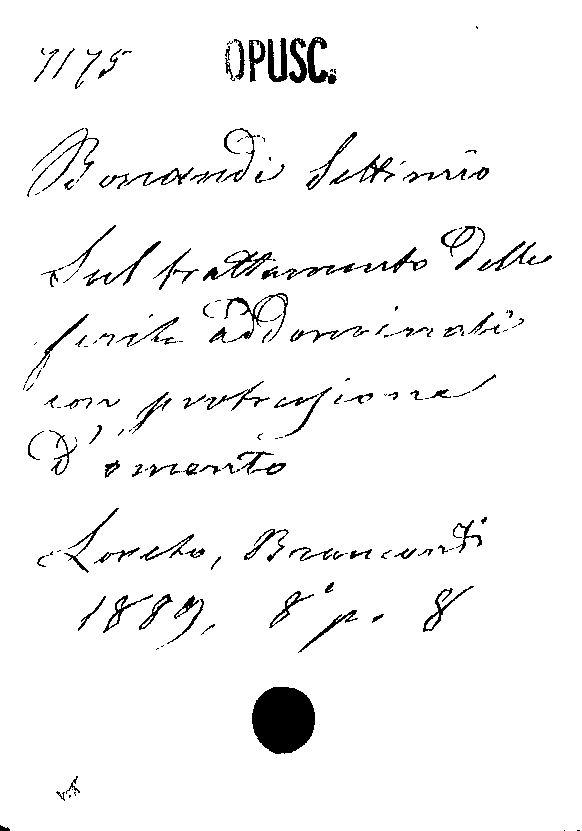 7175 OPUSC.
Bonandi Settimio
Sul trattamento delle
ferite addominali
con protrusione
d'omento
Loreto, Brancondi
1889, 8° p. 8